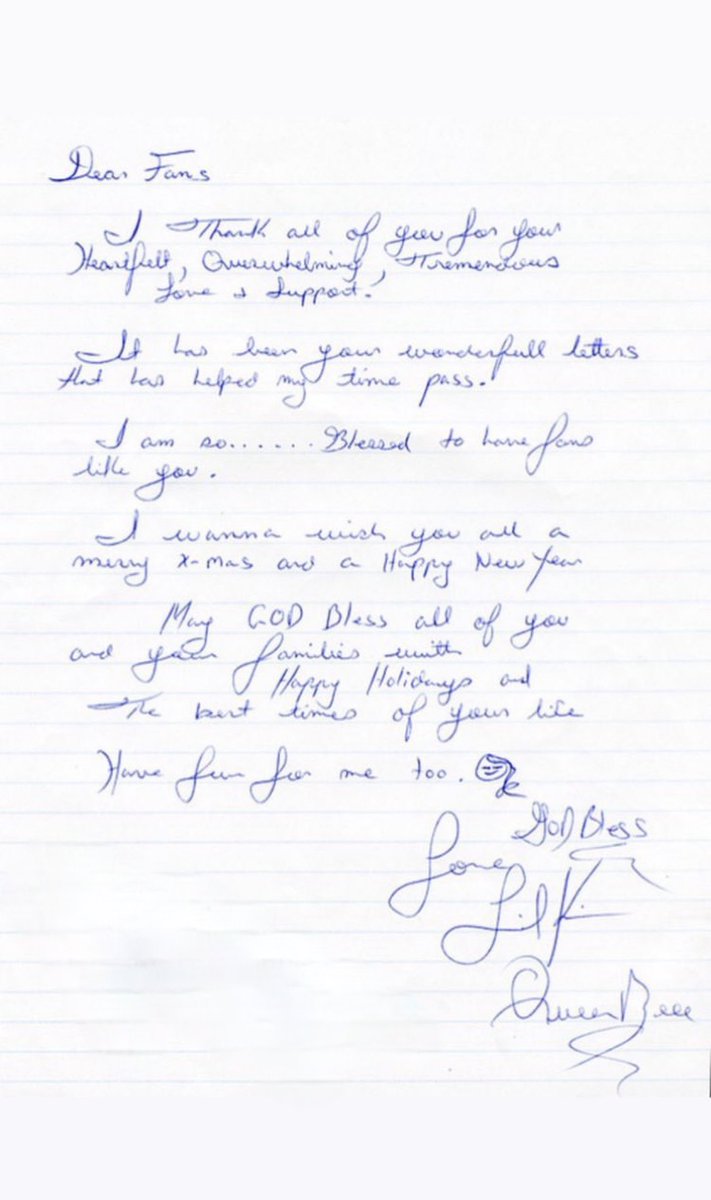 Dear Fans
I Thank all of you for your
Heartfelt, Overwhelming, Tremendous
Love & Support.
It has been your wonderfull letters
that has helped my time pass.
I am so...... Blessed to have fans
like you.
I wanna wish you all a
merry X-mas and a Happy New Year
May GOD Bless all of you
and your families with
Happy Holidays and
The best times of your life
Have fun for me too.
GOD Bless
Love
Lil Kim
Queen Bee